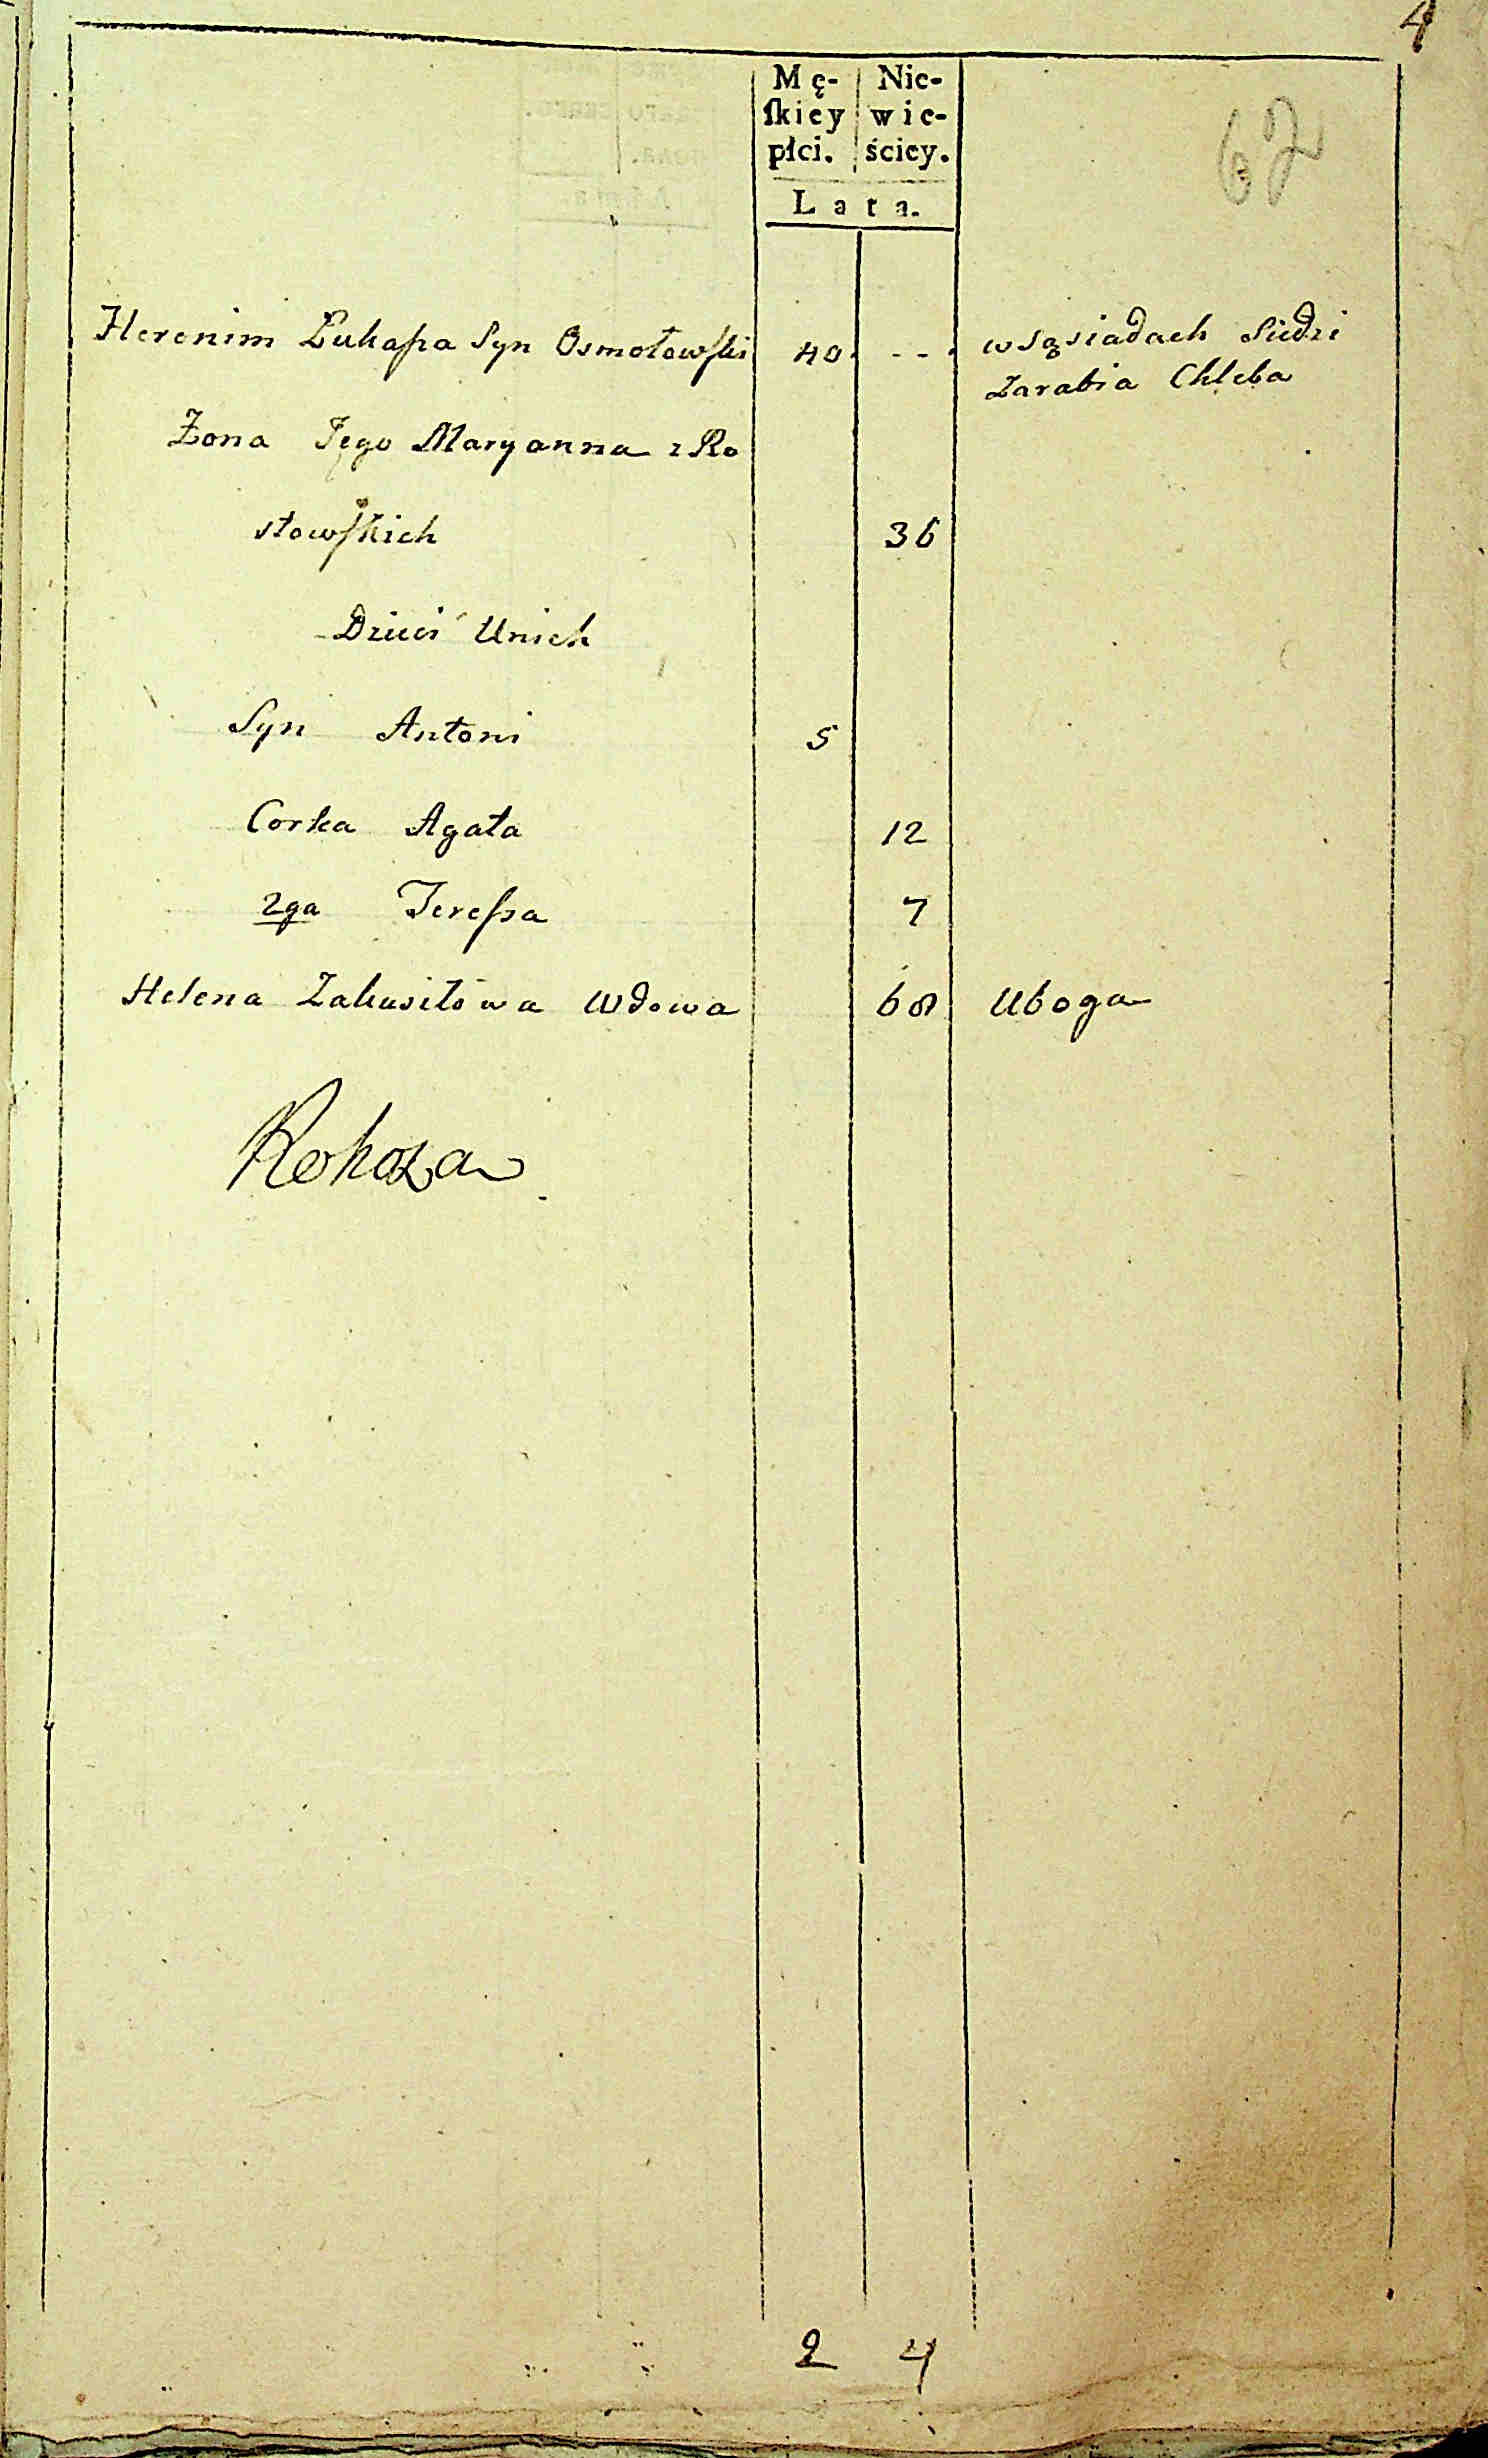 4
62
Mę- Nie-
ſkiey wie-
płci. ściey.
Lata.
Heronim Łukaſza Syn Osmołowſki 40 - - - w sąsiadach Siedzi
Zarabia Chleba
Żona Jego Maryanna z Ro
słowſkich 36
Dzieci Unich
Syn Antoni 5
Corka Agata 12
2ga Tereſsa 7
Helena Zakusiłowa Wdowa 68 Uboga
Rohoza
2 4